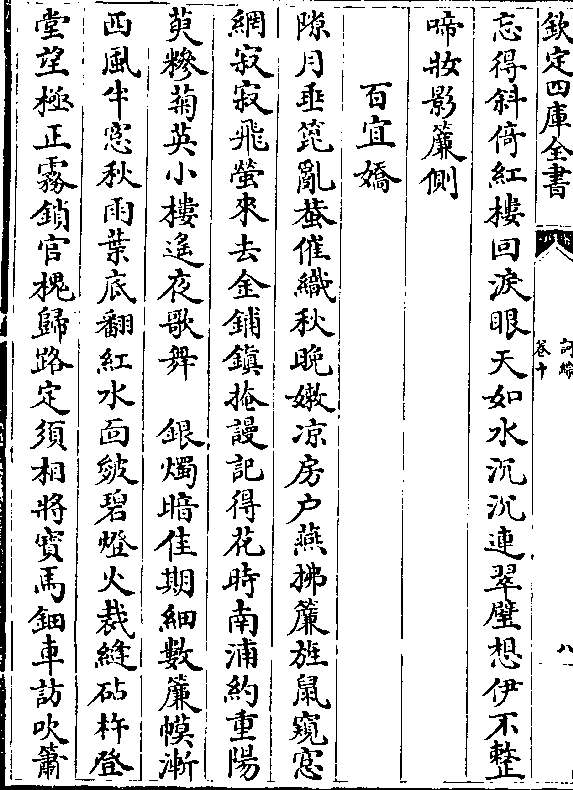 欽定四庫全書
詞綜
卷十
八
忘得斜倚紅樓回淚眼天如水沉沉連翠壁想伊不整
啼妝影簾側
百宜嬌
隙月垂箆亂蛩催織秋晚嫩凉房戶燕拂簾旌鼠窺窓
網寂寂飛螢來去金鋪鎮掩謾記得花時南浦約重陽
萸糝菊英小樓遙夜歌舞　銀燭暗佳期細數簾幙漸
西風午窓秋雨葉底翻紅水面皺碧燈火裁縫砧杵登
堂望極正霧鎖官槐歸路定須相將寶馬鈿車訪吹簫